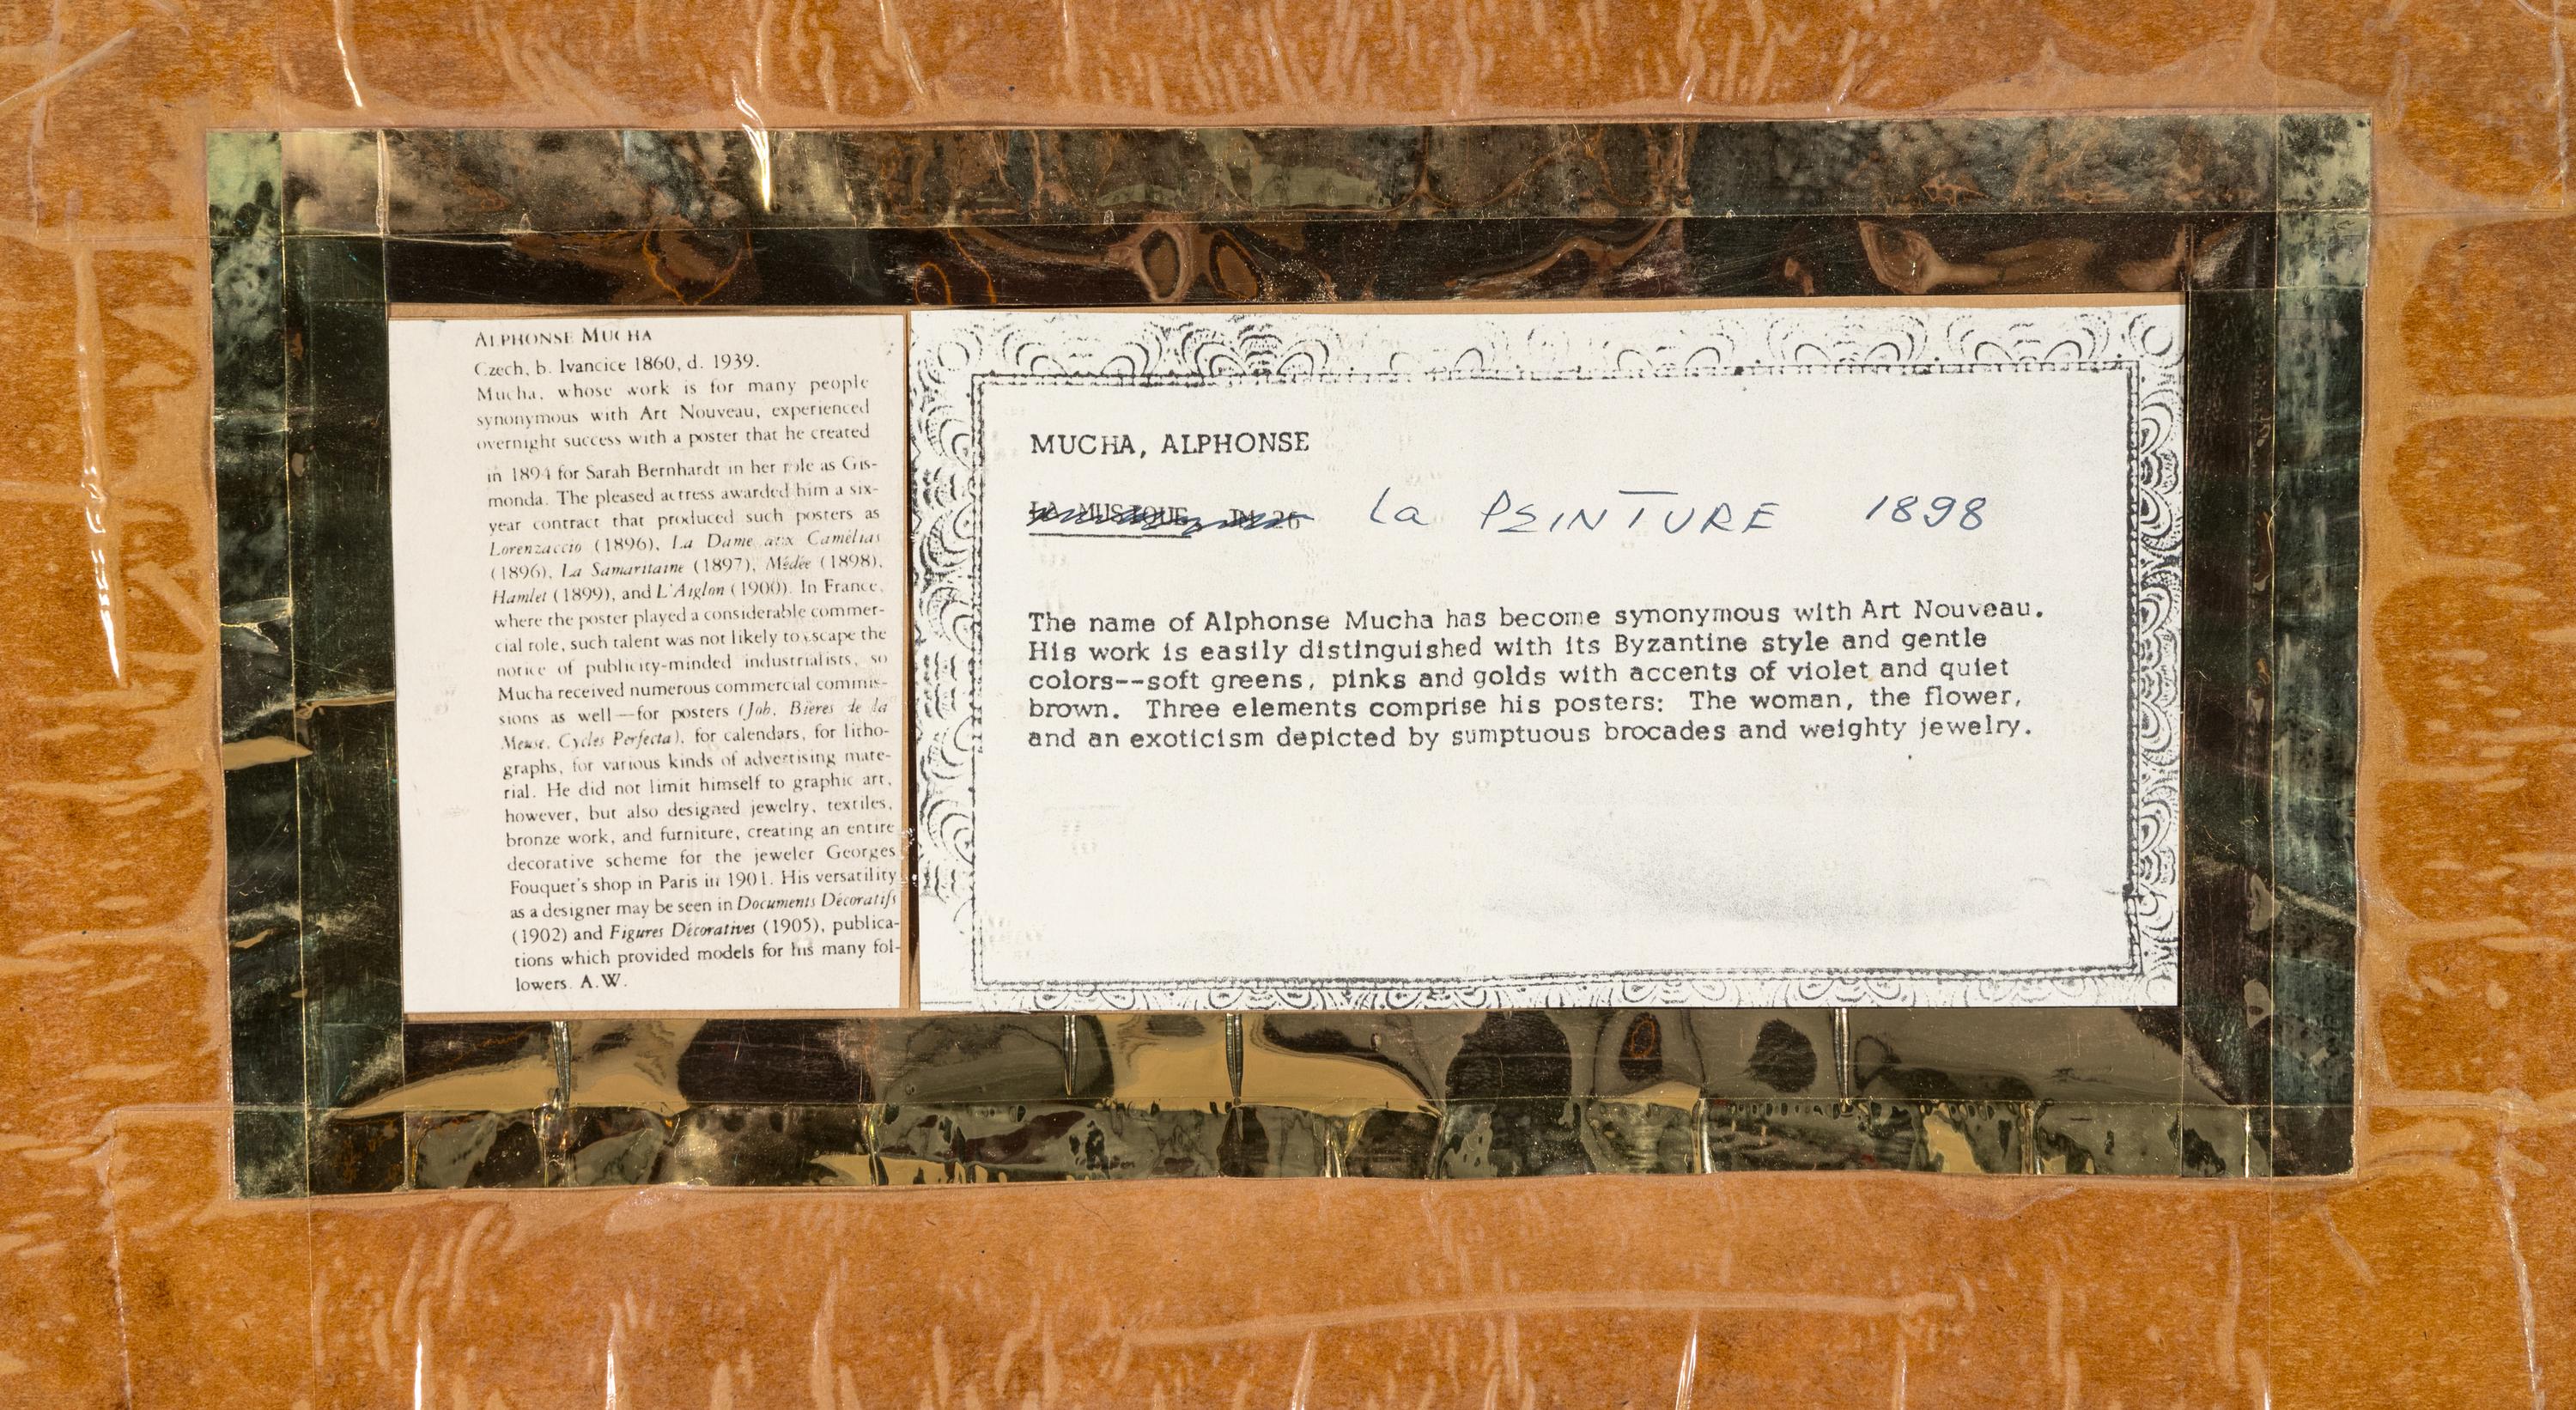 ALPHONSE MUCHA
Czech, b. Ivancice 1860, d. 1939.
Mucha, whose work is for many people
synonymous with Art Nouveau, experienced
overnight success with a poster that he created
in 1894 for Sarah Bernhardt in her role as Gis-
monda. The pleased actress awarded him a six-
year contract that produced such posters as
Lorenzaccio (1896), La Dame aux Camélias
(1896), La Samaritaine (1897), Médée (1898),
Hamlet (1899), and L'Aiglon (1900). In France,
where the poster played a considerable commer-
cial role, such talent was not likely to escape the
notice of publicity-minded industrialists, so
Mucha received numerous commercial commis-
sions as well—for posters (Job, Bières de la
Meuse, Cycles Perfecta), for calendars, for litho-
graphs, for various kinds of advertising mate-
rial. He did not limit himself to graphic art,
however, but also designed jewelry, textiles,
bronze work, and furniture, creating an entire
decorative scheme for the jeweler Georges
Fouquet's shop in Paris in 1901. His versatility
as a designer may be seen in Documents Décoratifs
(1902) and Figures Décoratives (1905), publica-
tions which provided models for his many fol-
lowers. A.W.
MUCHA, ALPHONSE
LA MUSIQUE IM 26 La PEINTURE 1898
The name of Alphonse Mucha has become synonymous with Art Nouveau.
His work is easily distinguished with its Byzantine style and gentle
colors--soft greens, pinks and golds with accents of violet and quiet
brown. Three elements comprise his posters: The woman, the flower,
and an exoticism depicted by sumptuous brocades and weighty jewelry.